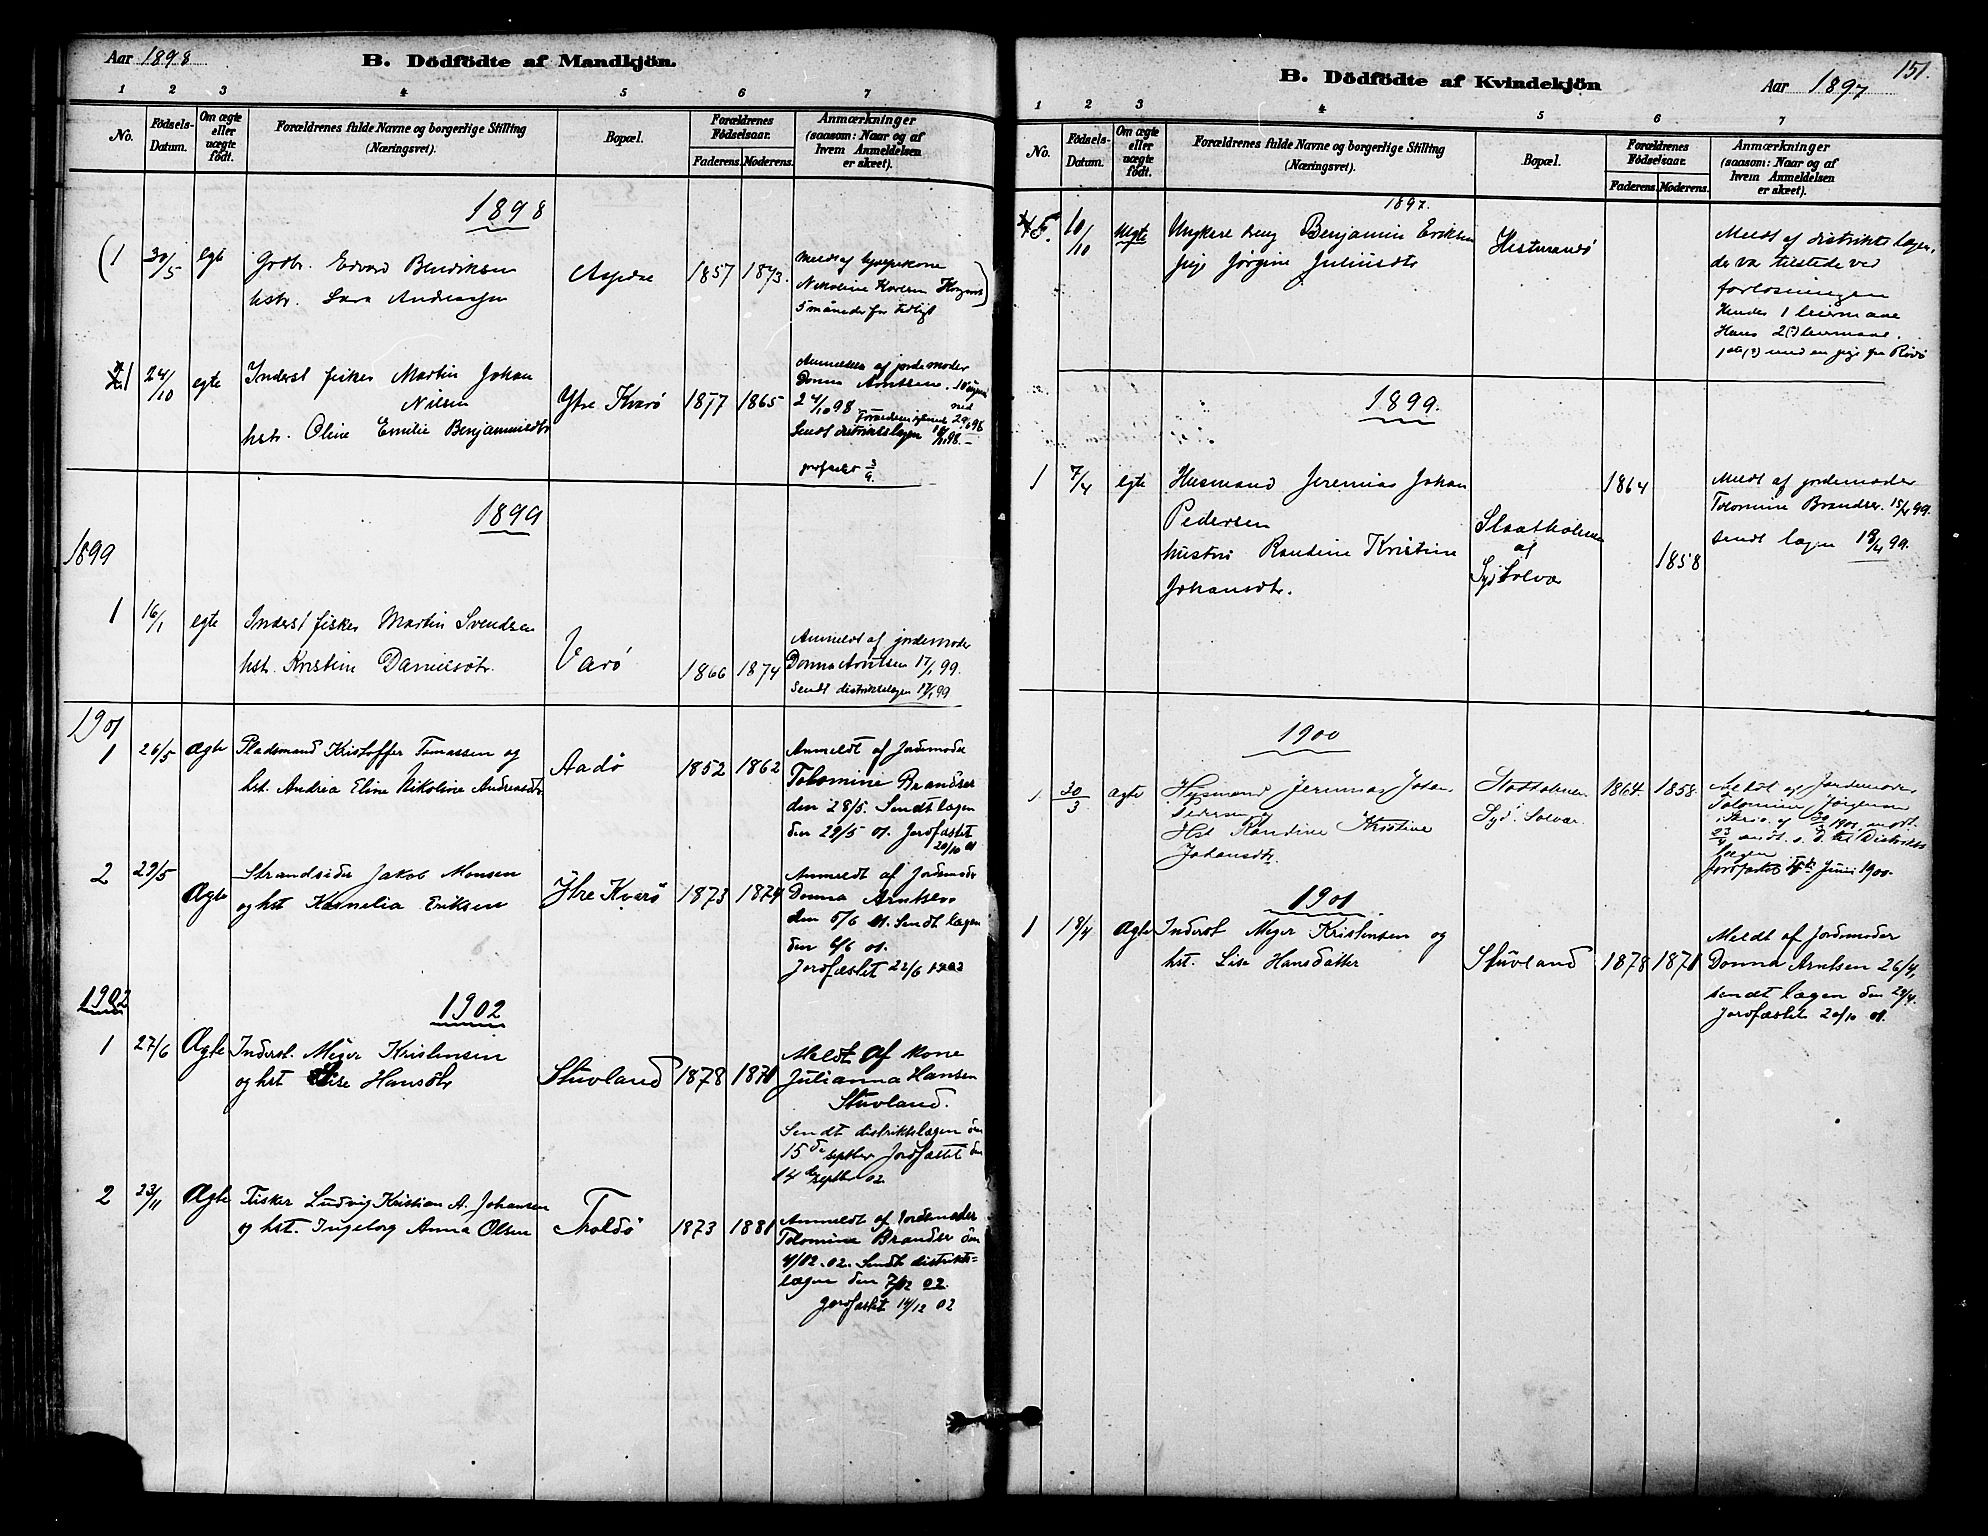 Aar 1898
B. Dödfödte af Mandkjön.
1 2 3 4 5 6 7
No.
Födsels-Datum.
Om ægte eller uægte födt.
Forældrenes fulde Navne og borgerlige Stilling (Næringsvei).
Bopæl.
Forældrenes Födselsaar.
Faderens. Moderens.
Anmærkninger (saasom: Naar og af hvem Anmeldelsen er skeet).
1898
(1 30/5 egte Edvard Bendiksen 1857 1873.
hstr. Sara
Nikoline Karlsen
5 måneder for tidligt
1 24/10 egte Inderst fisker Martin Johan Nilsen
hstr. Oline Emilie Benjaminsdtr
Ytre Kvarø 1877 1865
Anmeldes af jordemoder
Donna Arntsen.
24/10 98
Sendt distriktslægen
1899
1899
1 16/1 egte Inderst fisker Martin Svendsen
hstr. Kristine Danielsdtr.
Varø 1866 1874
Anmeldt af jordemoder
Donna Arntsen 17/1 99.
Sendt distriktslægen 17/1 99
1901
1 26/5 Ægte Pladsmand Kristoffer Tomassen og
hst. Andrea Eline Nikoline Andreasdtr
Aadø 1852 1862
Anmeldt af Jordemoder
Tolomine Brandser
den 28/5. Sendt lægen
den 29/5 01. Jordfæstet
20/10 01
2 29/5 Ægte Strandsider Jakob Monsen
og hst Kornelia Eriksen
Ytre Kvarø 1873 1874
Anmeldt af Jordemoder
Donna Arntsen
den 5/6 01. Sendt lægen
den 6/6 01.
Jordfæstet 22/6 1902
1902
1902
1 27/6 Ægte Inderst. Meyer Kristensen
og hst Lise Hansdtr
Stuvland 1878 1871
Meldt af kone
Julianna Hansen
Stuvland.
Sendt distriktslægen den
15de septber Jordfæstet den
14de septbr 02
2 23/11 Ægte Fisker Ludvig Kristian A. Johansen
og hst. Ingeborg Anna Olsen
Troldø 1873 1881
Anmeldt af Jordemoder
Tolomine Brandser den
4/12.02. Sendt distrikts-
lægen den 7/12 02.
Jordfæstet 14/12 02
151.
B. Dödfödte af Kvindekjön
Aar 1897
1 2 3 4 5 6 7
No.
Födsels-Datum.
Om ægte eller uægte födt.
Forældrenes fulde Navne og borgerlige Stilling (Næringsvei).
Bopæl.
Forældrenes Födselsaar.
Faderens. Moderens.
Anmærkninger (saasom: Naar og af hvem Anmeldelsen er skeet).
1897.
5. 10/10 Uegte Ungkarl Benjamin Eriksen
pige Jørgine Juliusdtr
Hestmandø
Meldt af distriktslægen,
der var tilstede ved
forløsningen
Hendes 1 leiermaal
Hans 2(?) leiermaal.
1899.
1 7/4 egte Husmand Jeremias Johan
Pedersen
hustru Randine Kristine
Johansdtr.
af
Syd Solvær
1864
1858
Meldt af jordemoder
Tolomine Brandser. 15/4 99.
sendt lægen 18/4 99.
1900
1 30/3 ægte Husmand Jeremias Johan
Pedersen og
Hst Randine Kristine
Johansdtr.
Syd. Solvær.
1864. 1858.
Meldt af Jordemoder
Tolomine Jørgensen
Distrikts
lægen
Juni 1900.
1901
1 18/4 Ægte Inderst Meyer Kristensen og
hst. Lise Hansdatter
Stuvland 1878 1871
Meldt af Jordemoder
Donna Arntsen 26/4,
sendt lægen den 29/4.
Jordfæstet 20/10 01.